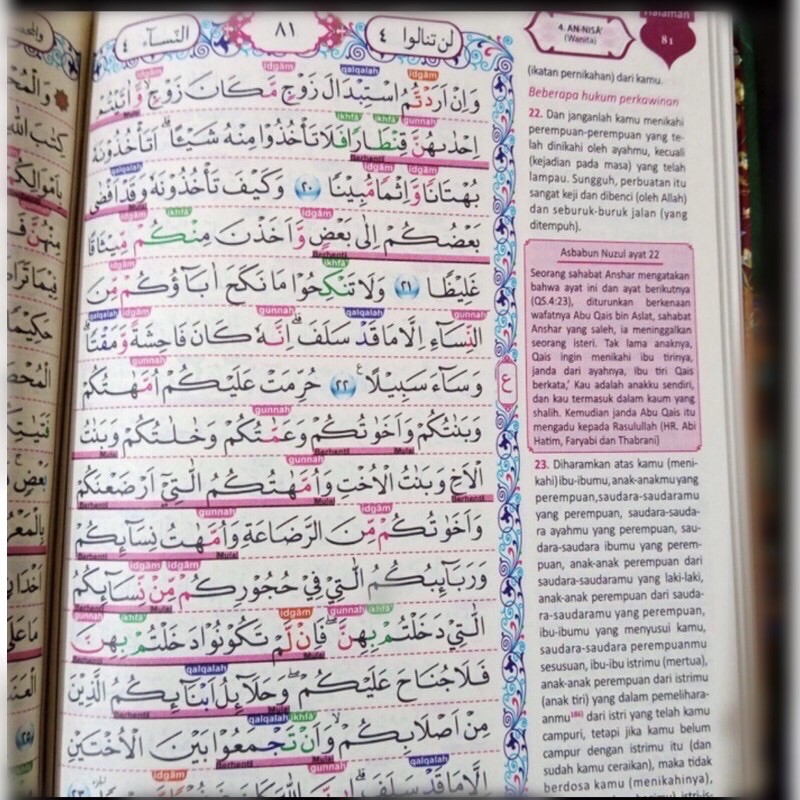 النسآء ٤
٨١
لن تنالوا ٤
وَاِنْ اَرَدْتُّمُ اسْتِبْدَالَ زَوْجٍ مَّكَانَ زَوْجٍۙ وَّاٰتَيْتُمْ
اِحْدٰىهُنَّ قِنْطَارًا فَلَا تَأْخُذُوْا مِنْهُ شَيْـًٔاۗ اَتَأْخُذُوْنَهٗ
بُهْتَانًا وَّاِثْمًا مُّبِيْنًا ٢٠ وَكَيْفَ تَأْخُذُوْنَهٗ وَقَدْ اَفْضٰى
بَعْضُكُمْ اِلٰى بَعْضٍ وَّاَخَذْنَ مِنْكُمْ مِّيْثَاقًا
غَلِيْظًا ٢١ وَلَا تَنْكِحُوْا مَا نَكَحَ اٰبَاۤؤُكُمْ مِّنَ
النِّسَاۤءِ اِلَّا مَا قَدْ سَلَفَۗ اِنَّهٗ كَانَ فَاحِشَةً وَّمَقْتًاۗ
وَسَاۤءَ سَبِيْلًا ࣖ ٢٢ حُرِّمَتْ عَلَيْكُمْ اُمَّهٰتُكُمْ
وَبَنٰتُكُمْ وَاَخَوٰتُكُمْ وَعَمّٰتُكُمْ وَخٰلٰتُكُمْ وَبَنٰتُ
الْاَخِ وَبَنٰتُ الْاُخْتِ وَاُمَّهٰتُكُمُ الّٰتِيْٓ اَرْضَعْنَكُمْ
وَاَخَوٰتُكُمْ مِّنَ الرَّضَاعَةِ وَاُمَّهٰتُ نِسَاۤىِٕكُمْ
وَرَبَاۤىِٕبُكُمُ الّٰتِيْ فِيْ حُجُوْرِكُمْ مِّنْ نِّسَاۤىِٕكُمُ
الّٰتِيْ دَخَلْتُمْ بِهِنَّۖ فَاِنْ لَّمْ تَكُوْنُوْا دَخَلْتُمْ بِهِنَّ
فَلَا جُنَاحَ عَلَيْكُمْۖ وَحَلَاۤىِٕلُ اَبْنَاۤىِٕكُمُ الَّذِيْنَ
مِنْ اَصْلَابِكُمْۙ وَاَنْ تَجْمَعُوْا بَيْنَ الْاُخْتَيْنِ
اِلَّا مَا قَدْ سَلَفَۗ
4. AN-NISĀ'
(Wanita)
Halaman
81
(ikatan pernikahan) dari kamu.
Beberapa hukum perkawinan
22. Dan janganlah kamu menikahi
perempuan-perempuan yang te-
lah dinikahi oleh ayahmu, kecuali
(kejadian pada masa) yang telah
lampau. Sungguh, perbuatan itu
sangat keji dan dibenci (oleh Allah)
dan seburuk-buruk jalan (yang
ditempuh).
Asbabun Nuzul ayat 22
Seorang sahabat Anshar mengatakan
bahwa ayat ini dan ayat berikutnya
(QS.4:23), diturunkan berkenaan
wafatnya Abu Qais bin Aslat, sahabat
Anshar yang saleh, ia meninggalkan
seorang isteri. Tak lama anaknya,
Qais ingin menikahi ibu tirinya,
janda dari ayahnya, Ibu tiri Qais
berkata,' Kau adalah anakku sendiri,
dan kau termasuk dalam kaum yang
shalih. Kemudian janda Abu Qais itu
mengadu kepada Rasulullah (HR. Abi
Hatim, Faryabi dan Thabrani)
23. Diharamkan atas kamu (meni-
kahi) ibu-ibumu, anak-anakmu yang
perempuan, saudara-saudaramu
yang perempuan, saudara-sauda-
ra ayahmu yang perempuan, sau-
dara-saudara ibumu yang perem-
puan, anak-anak perempuan dari
saudara-saudaramu yang laki-laki,
anak-anak perempuan dari sauda-
ra-saudaramu yang perempuan,
ibu-ibumu yang menyusui kamu,
saudara-saudara perempuanmu
sesusuan, ibu-ibu istrimu (mertua),
anak-anak perempuan dari istrimu
(anak tiri) yang dalam pemelihara-
anmu dari istri yang telah kamu
campuri, tetapi jika kamu belum
campur dengan istrimu itu (dan
sudah kamu ceraikan), maka tidak
berdosa kamu (menikahinya),